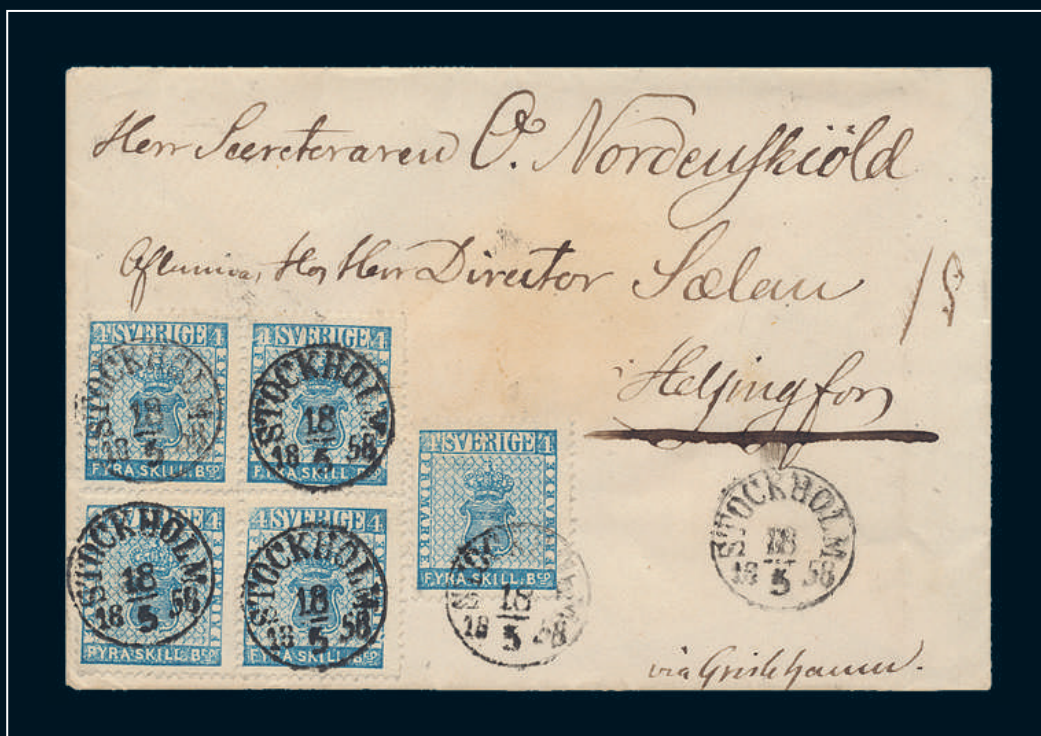 Herr Secreteraren O. Nordenskiöld
Hos Herr Director Sælan
Helsingfors
4 SVERIGE 4
FYRA SKILL. Bco
STOCKHOLM
18
5
18 58
4 SVERIGE 4
FYRA SKILL. Bco
STOCKHOLM
18
5
18 58
4 SVERIGE 4
FRIMÄRKE
FYRA SKILL. Bco
STOCKHOLM
18
5
18 58
4 SVERIGE 4
FYRA SKILL. Bco
STOCKHOLM
18
5
18 58
4 SVERIGE 4
FYRA SKILL. Bco
STOCKHOLM
18
5
18 58
STOCKHOLM
18
5
18 58
via Grislehamn.